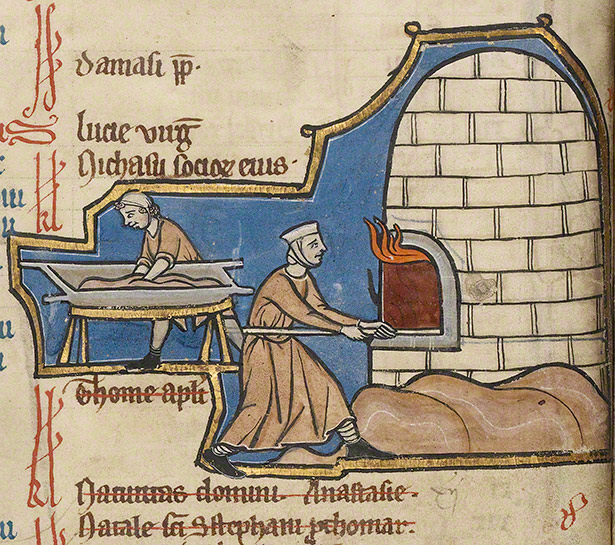 damasi pp̄.
lucie uirḡ
Nichasii socior eius.
Thome apl̄i
Natiuitas domini. Anastasie.
Natale sc̄i Sstephani p̄thomar.